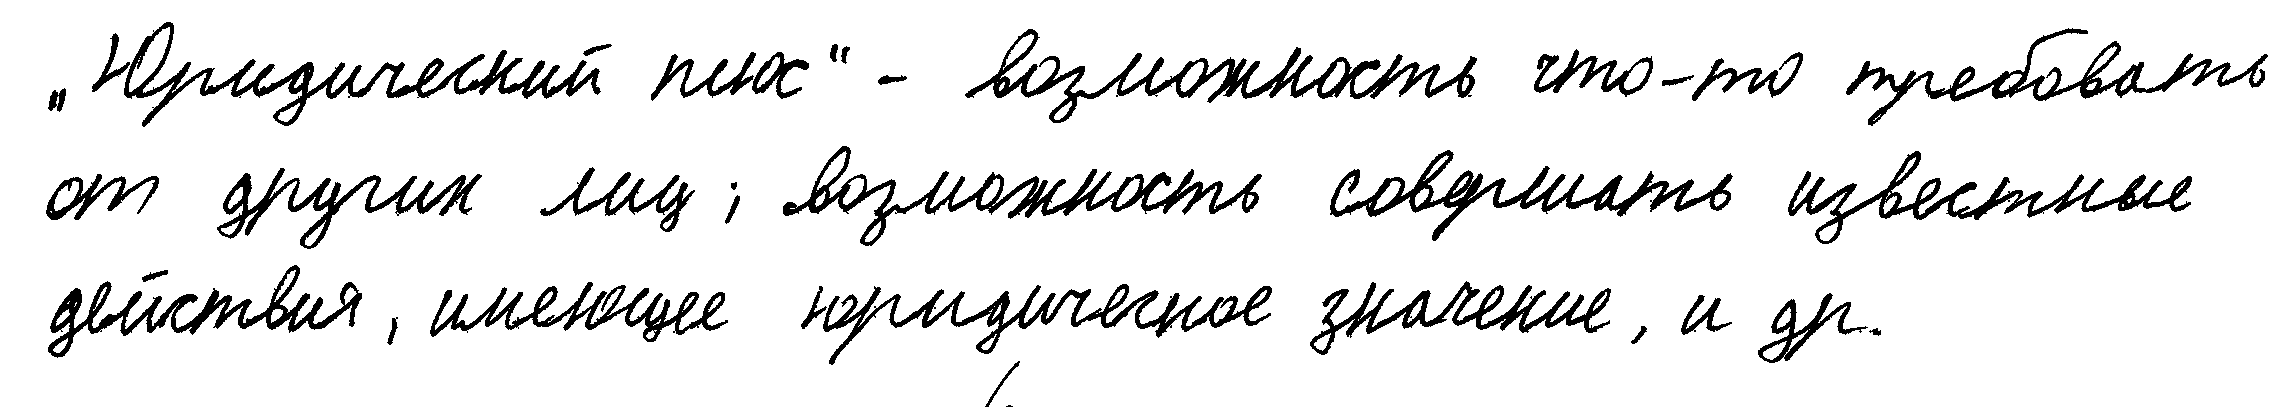 „Юридический плюс“ - возможность что-то требовать
от других лиц; возможность совершать известные
действия, имеющее юридическое значение, и др.